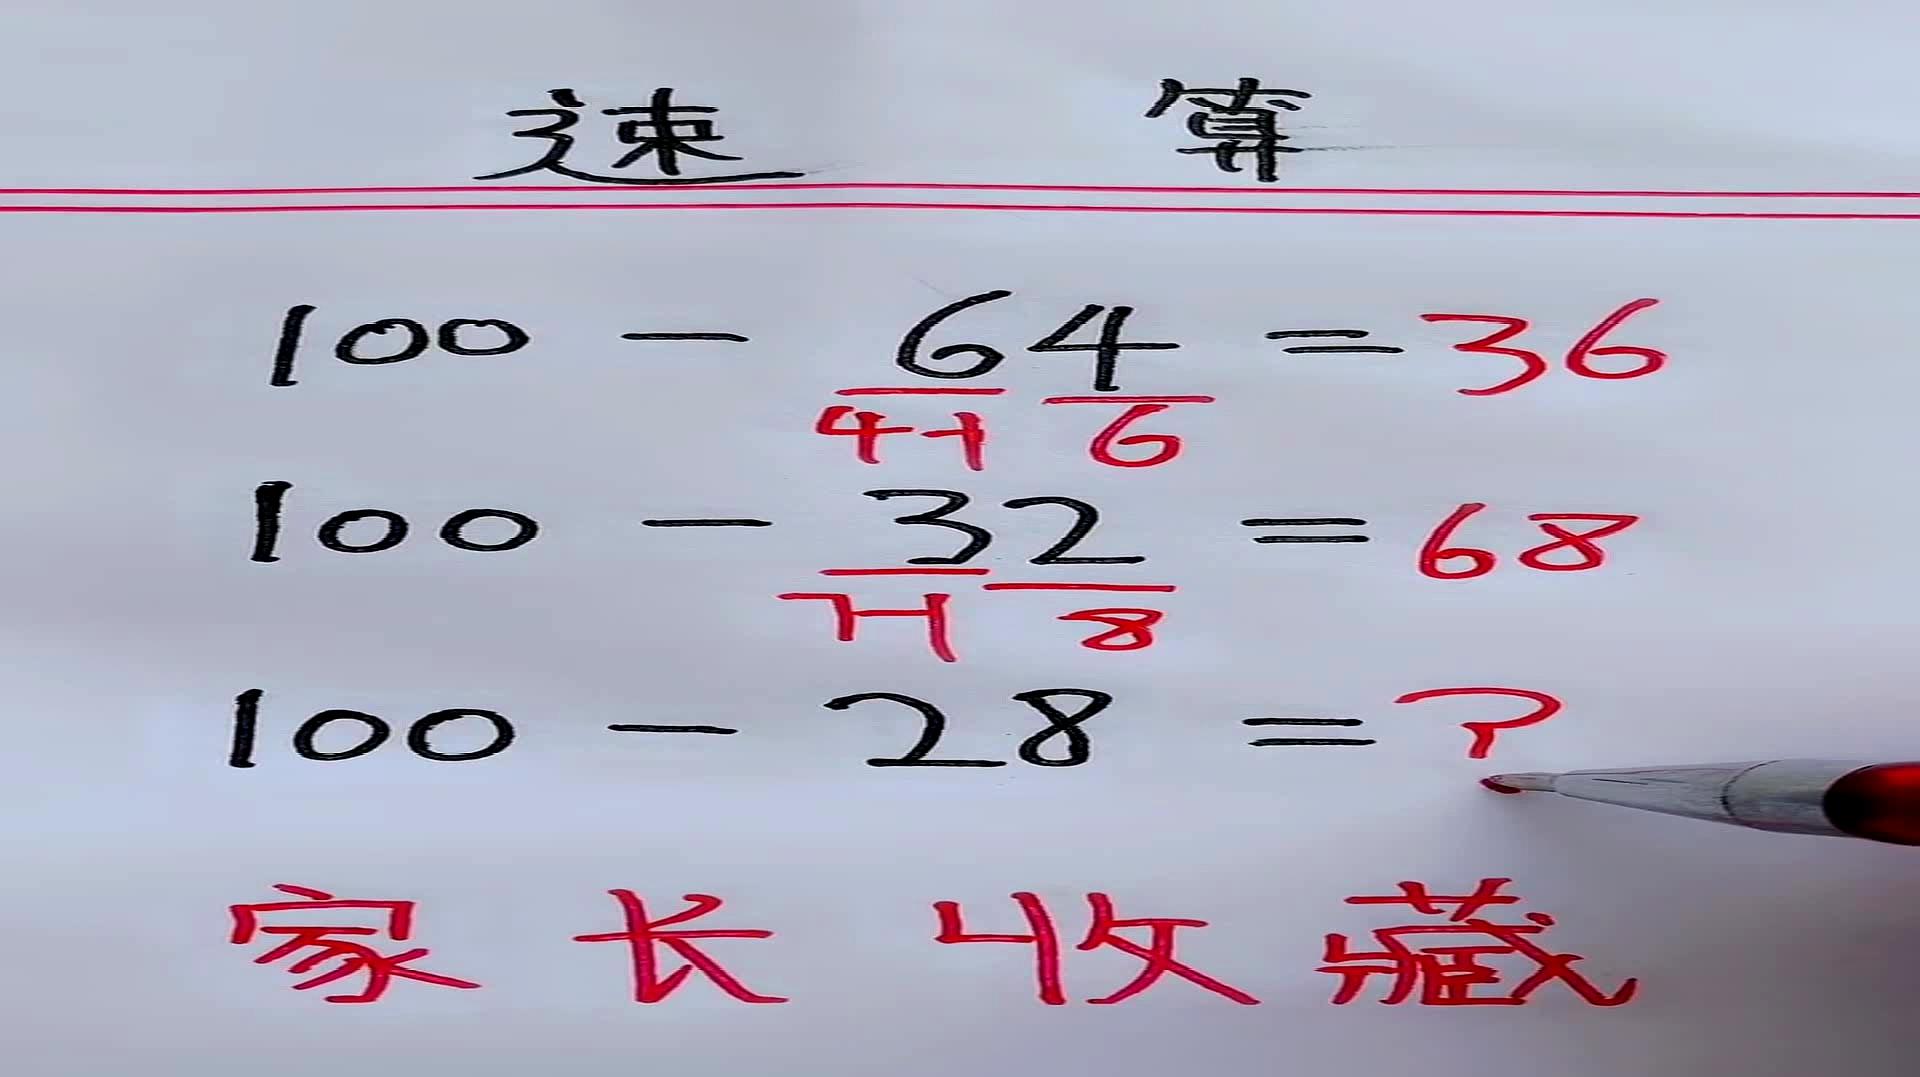 速 算
100 - 64 = 36
4+ 6
100 - 32 = 68
7+ 8
100 - 28 = ?
家长收藏